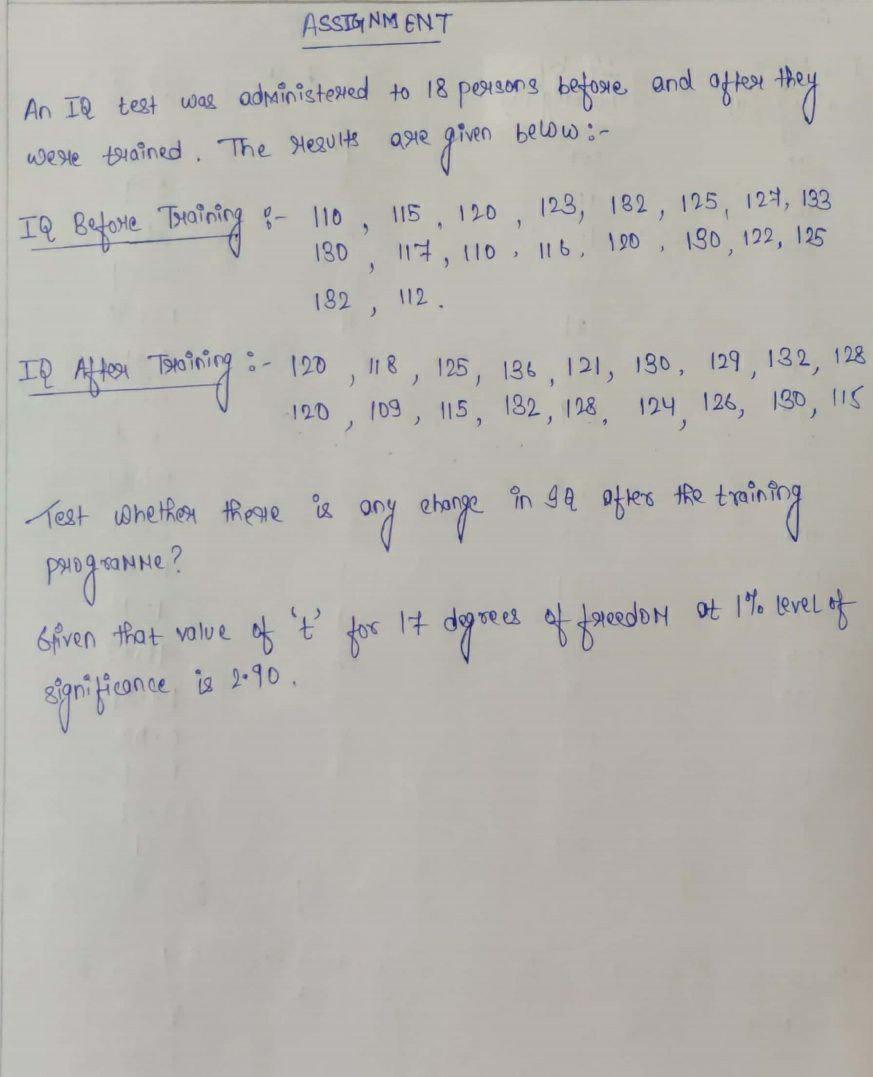 ASSIGNMENT
An IQ test was administered to 18 persons before and after they
were trained. The results are given below :-
IQ Before Training :- 110, 115, 120, 123, 132, 125, 127, 133
130, 117, 110, 116, 120, 130, 122, 125
132, 112.
IQ After Training :- 120, 118, 125, 136, 121, 130, 129, 132, 128
120, 109, 115, 132, 128, 124, 126, 130, 115
Test whether there is any change in IQ after the training
programme?
Given that value of 't' for 17 degrees of freedom at 1% level of
significance is 2.90.